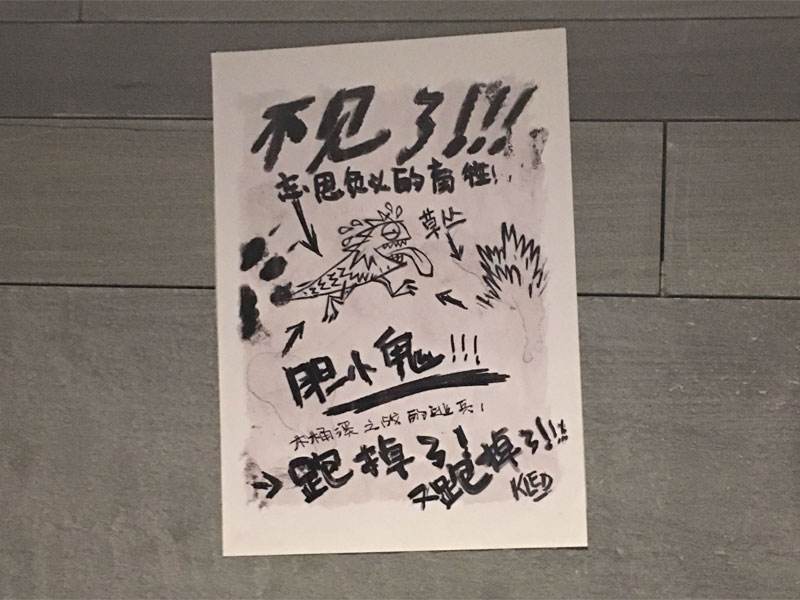 不见了!!!
忘恩负义的畜牲!
草丛
胆小鬼!!!
木桶深之战的逃兵!
跑掉了!
又跑掉了!!!
KLED